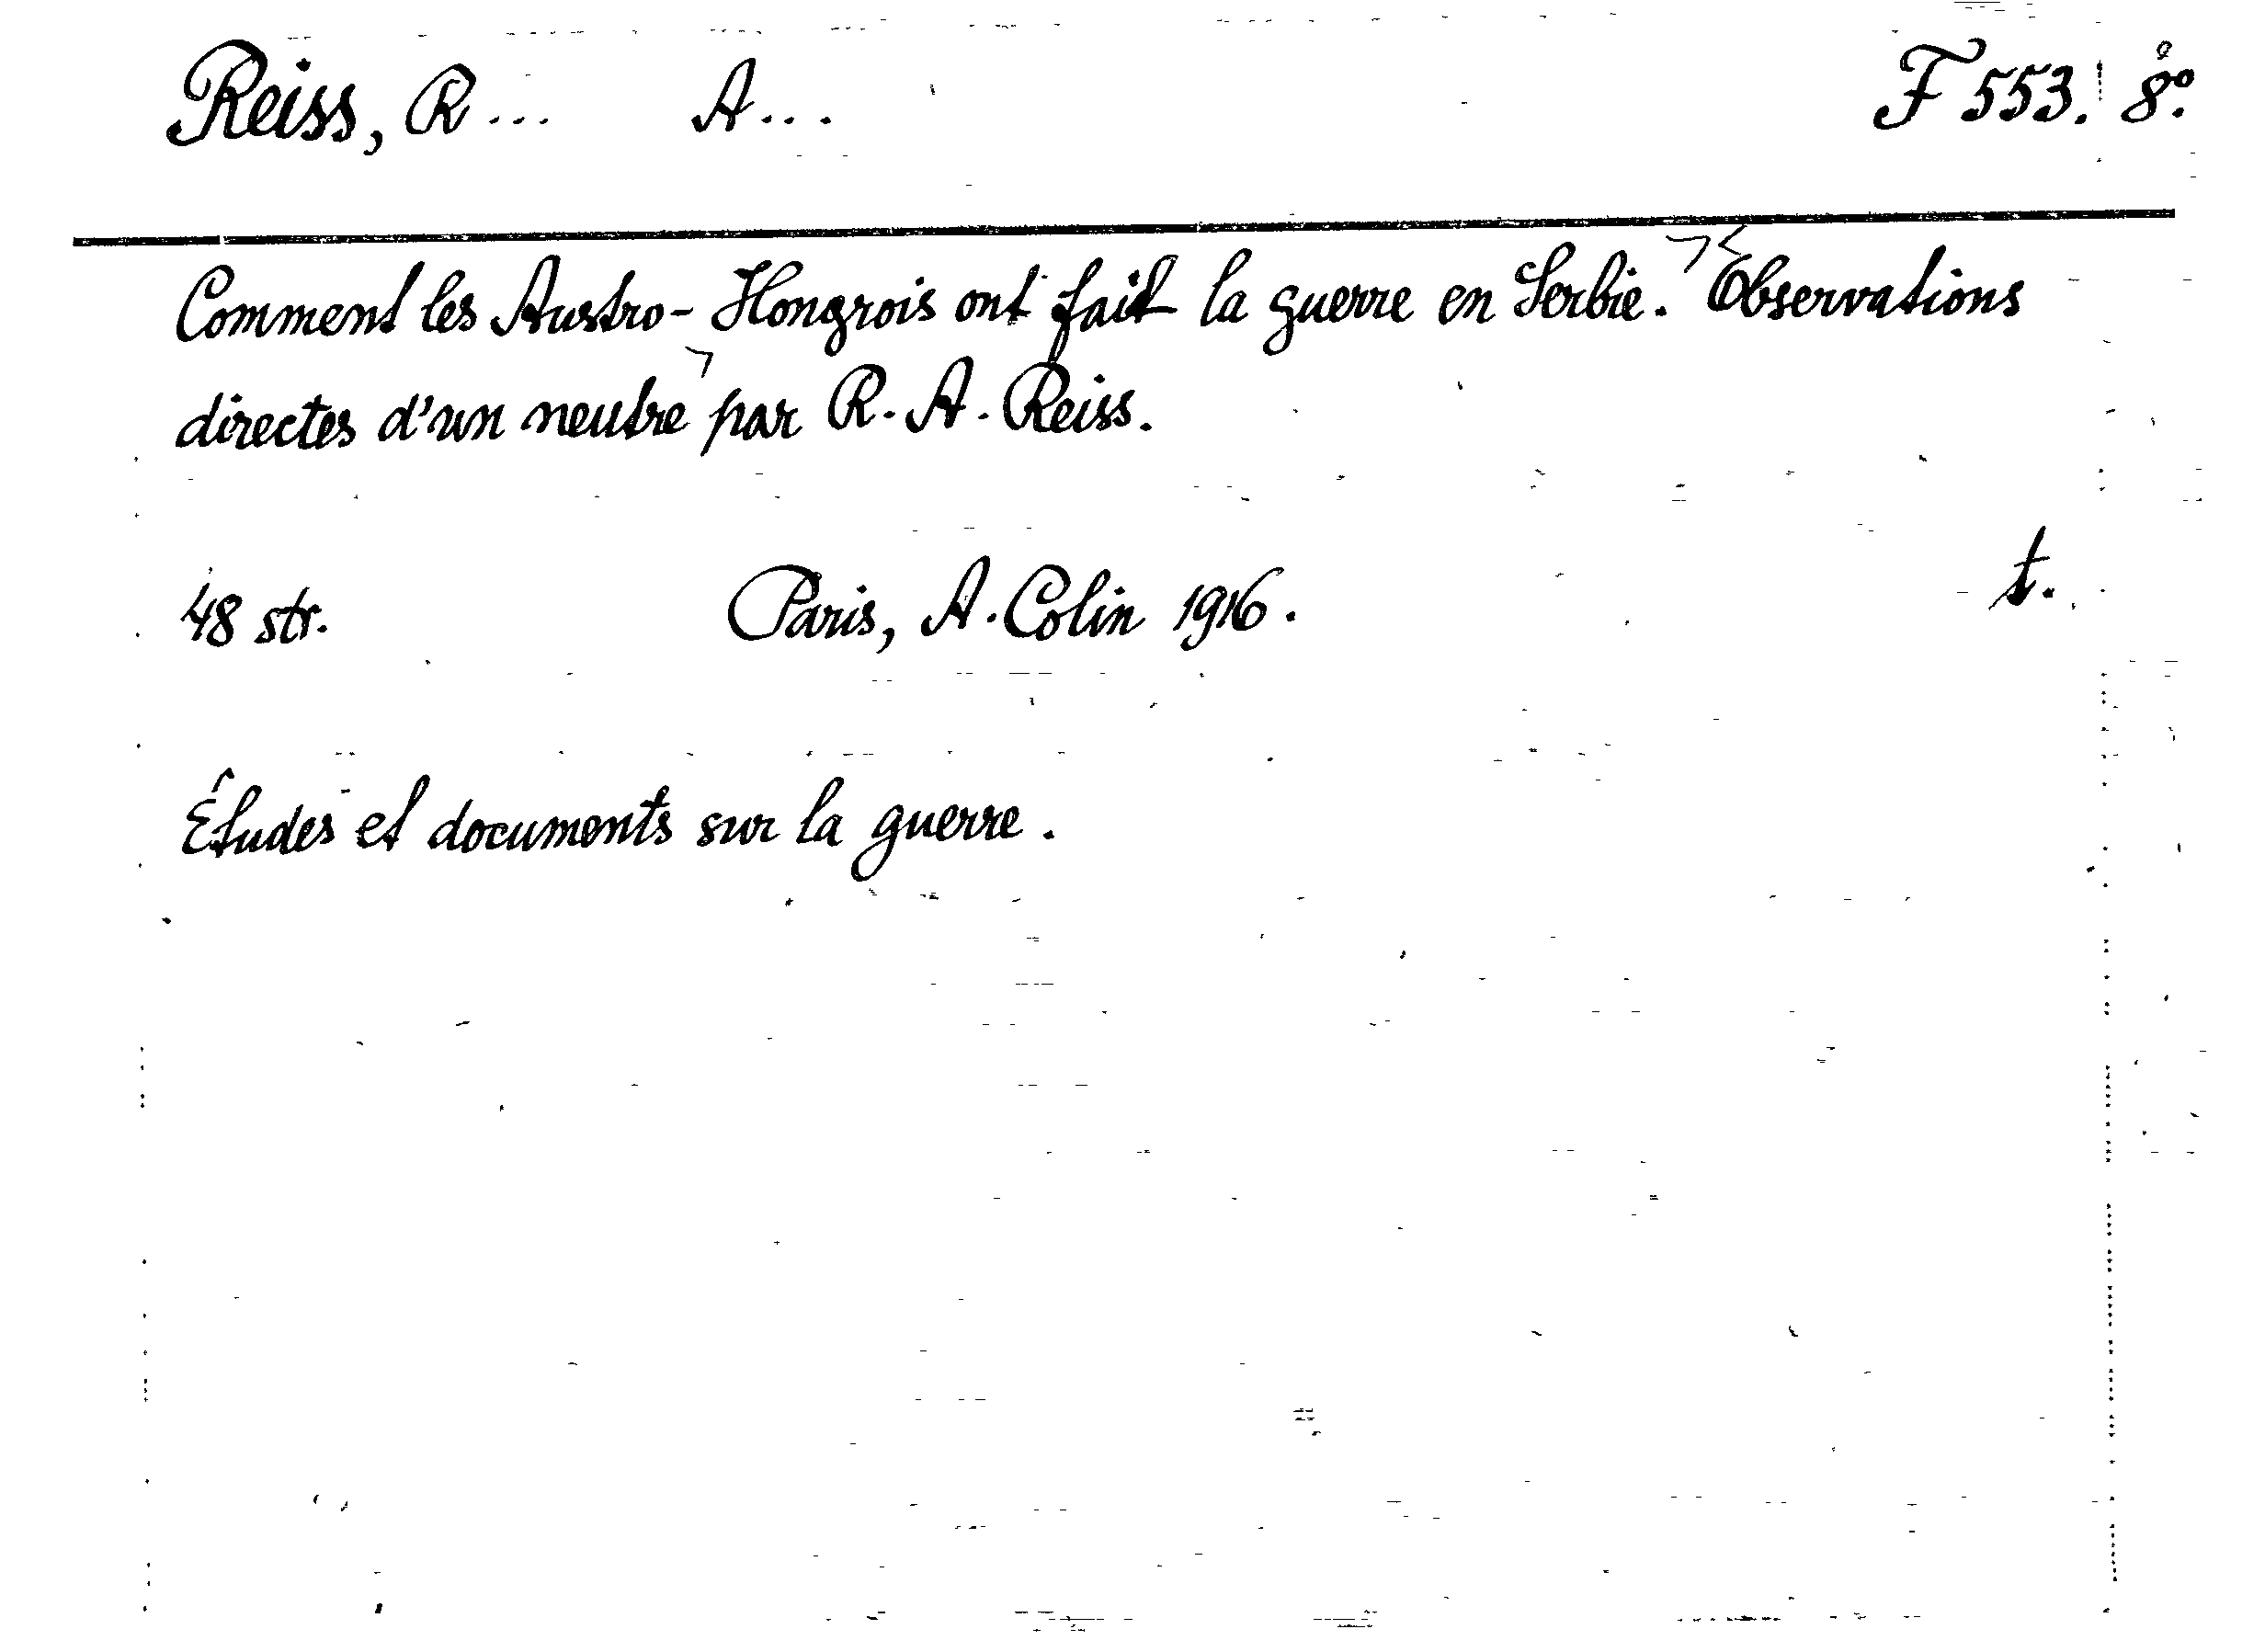 Reiss, R... A... F 553. 8º.
Comment les Austro-Hongrois ont fait la guerre en Serbie. Observations
directes d'un neutre par R. A. Reiss.
48 str. Paris, A. Colin 1916. t.
Études et documents sur la guerre.